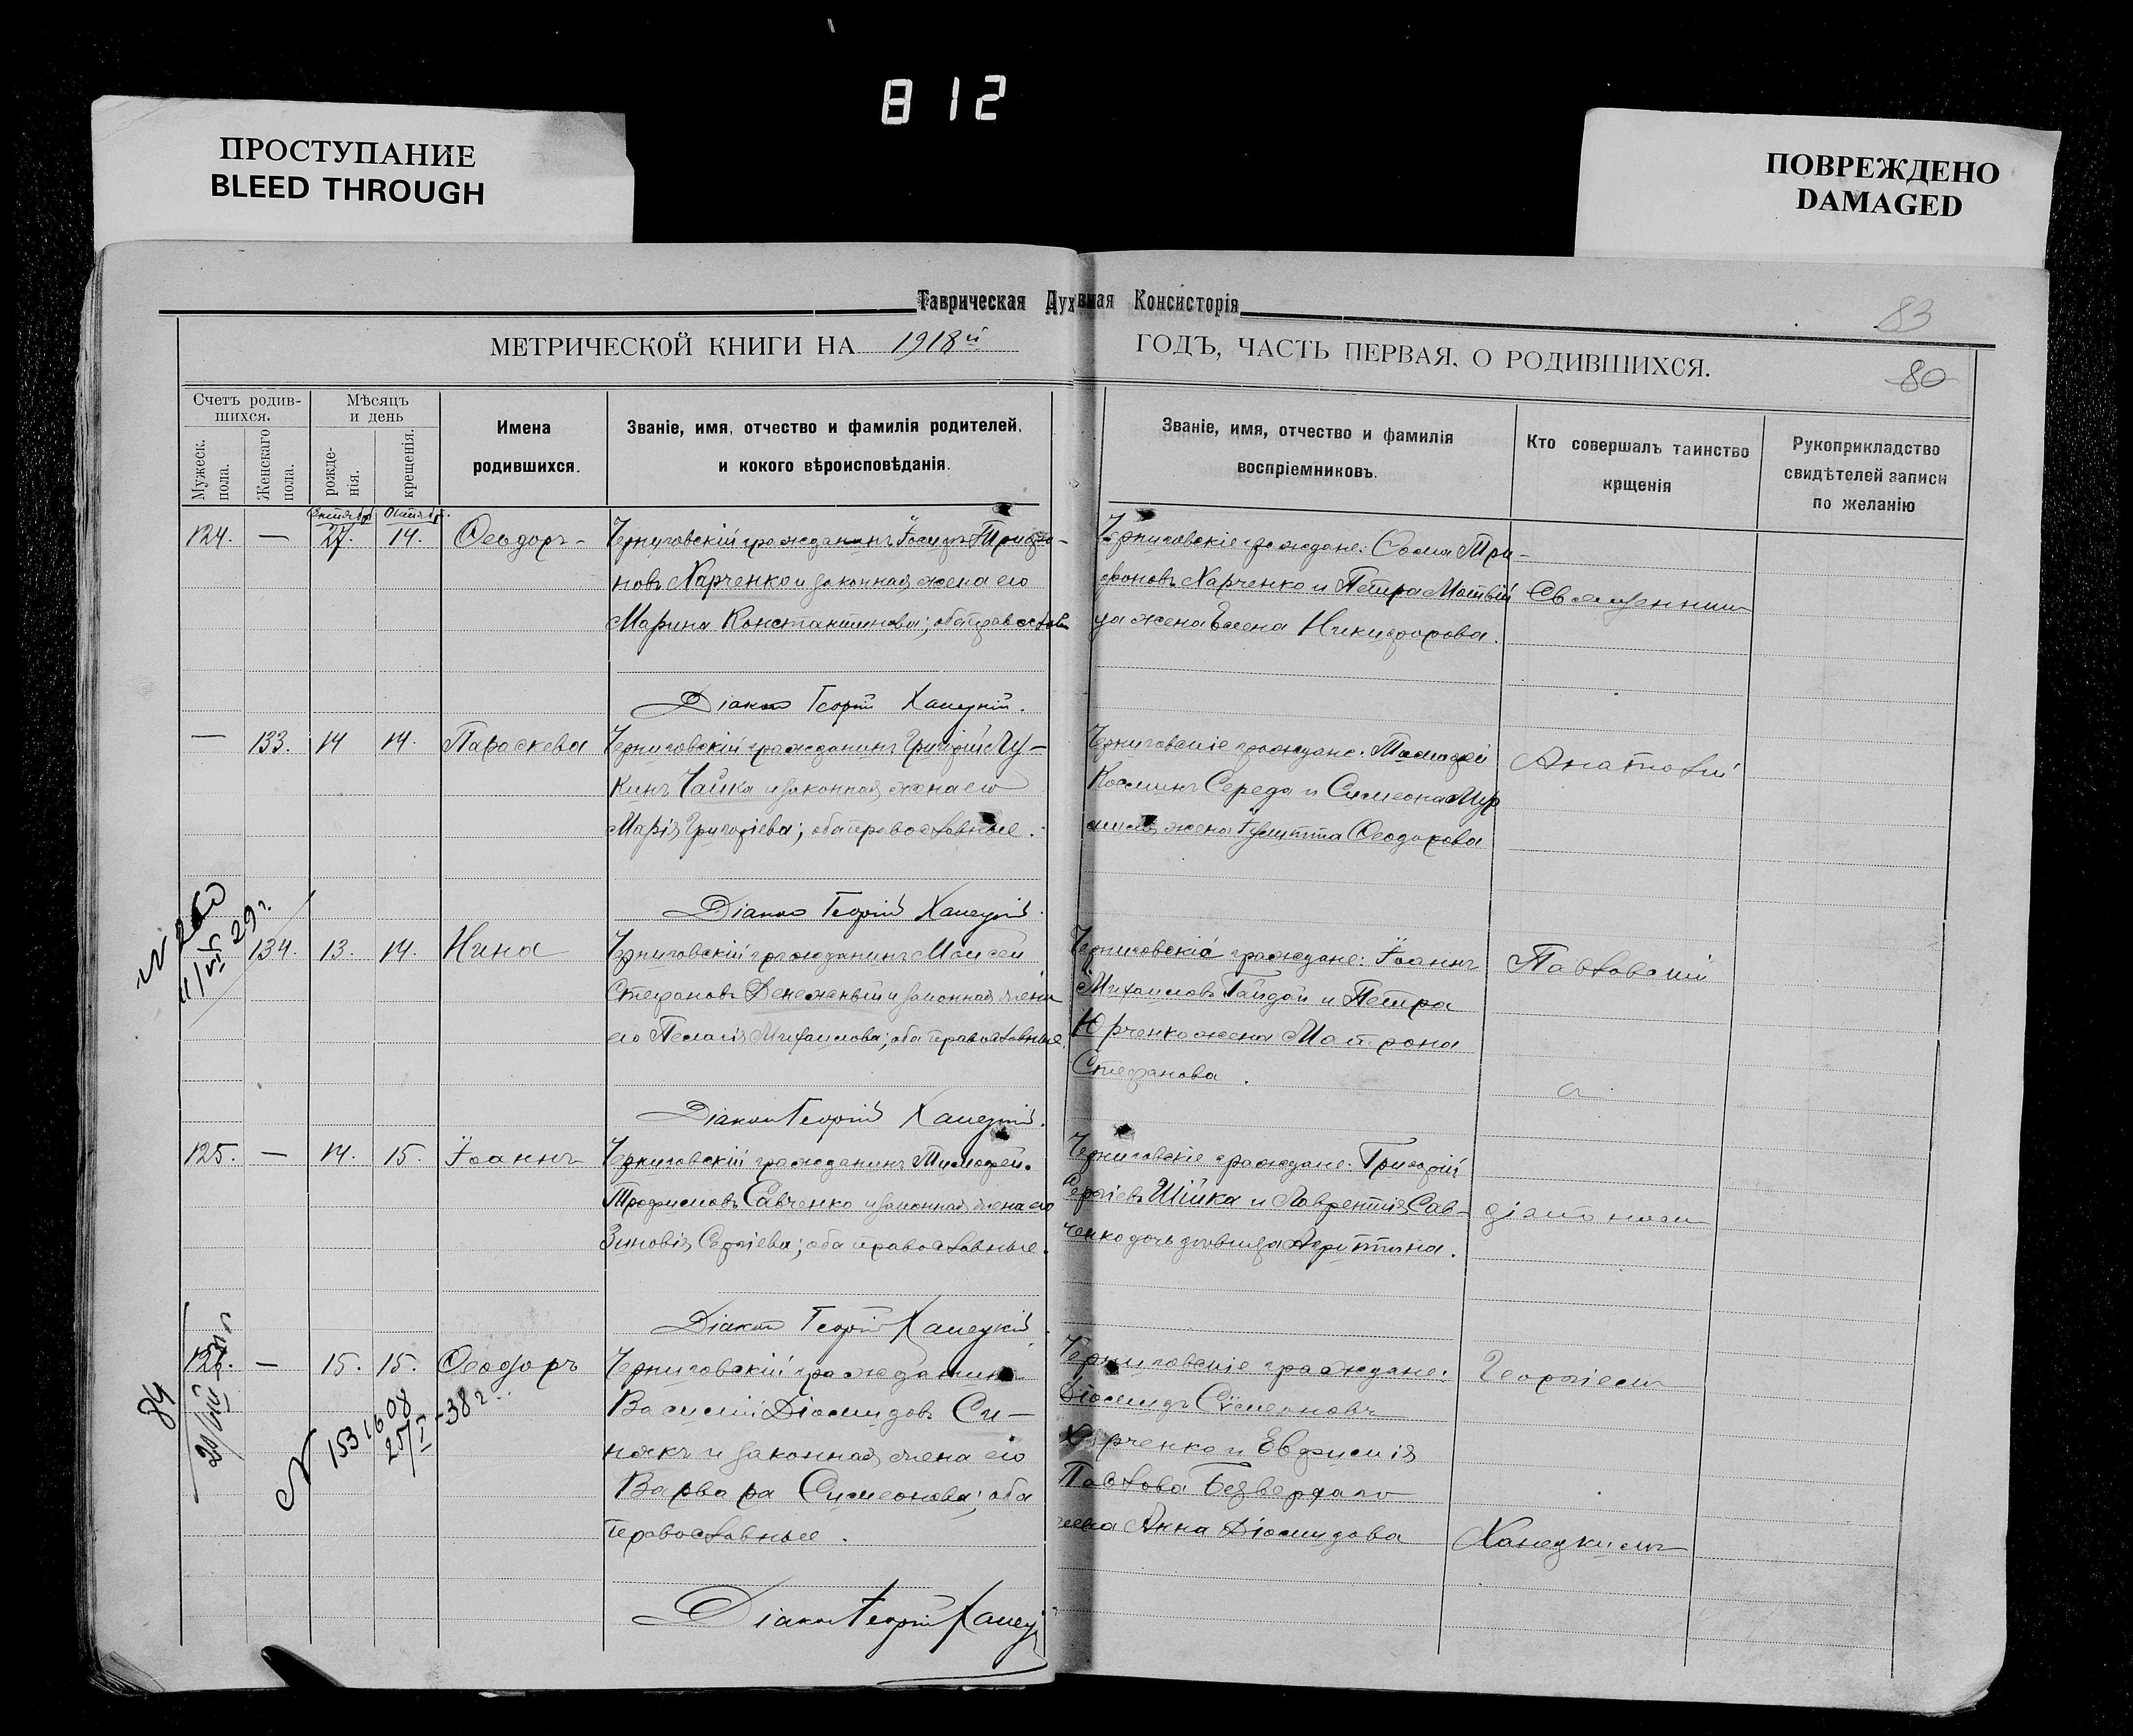 812
ПРОСТУПАНИЕ
BLEED THROUGH
ПОВРЕЖДЕНО
DAMAGED
Таврическая Духовная Консисторія
83
МЕТРИЧЕСКОЙ КНИГИ НА 1918й ГОДЪ, ЧАСТЬ ПЕРВАЯ, О РОДИВШИХСЯ.
80
Счетъ родив-
шихся.
Мужеск.
пола.
Женскаго
пола.
Мѣсяцъ
и день
рожде-
нія.
крещенія.
Имена
родившихся.
Званіе, имя, отчество и фамилія родителей,
и кокого вѣроисповѣданія.
Званіе, имя, отчество и фамилія
воспріемниковъ.
Кто совершалъ таинство
крщенія
Рукоприкладство
свидѣтелей записи
по желанію
124. — 27. 14. Ѳеодоръ
Черниговскій гражданинъ Іосифъ Трифо-
новъ Харченко и законная жена его
Марина Константинова; оба православ
Діаконъ Георгій Ханецкій.
Черниговскіе граждане: Три-
фоновъ Харченко и Петра Матвій
ца жена Елена Никифорова.
— 133. 14 14. Параскева
Черниговскій гражданинъ Григорій Лу-
кинъ Чайка и законная жена его
Марія Григоріева; оба православные.
Діаконъ Георгій Ханецкій.
Черниговскіе граждане: Тимофей
Косминъ Середа и Симеона
жена Іулитта Ѳеодорова
134. 13. 14. Нина
Черниговскій гражданинъ Моисей
Стефановъ Денежный и законная жена
его Пелагія Михаилова; оба православные
Діаконъ Георгій Ханецкій.
Черниговскіе граждане: Іоаннъ
Михаиловъ Гайдай и Петра
Юрченко жена Матрона
Стефанова.
125. — 14. 15. Іоаннъ
Черниговскій гражданинъ Тимофей
Трофимовъ Савченко и законная жена его
Зиновія Сергіева; оба православные.
Діаконъ Георгій Ханецкій.
Черниговскіе граждане: Григорій
Сергіевъ Шійка и Лаврентія Сав-
ченко дочь дѣвица Агриппина.
126. — 15. 15. Ѳеодоръ
Черниговскій гражданинъ
Василій Діомидовъ Си-
някъ и законная жена его
Варвара Симеонова; оба
православные.
Діаконъ Георгій Ханецкій
Черниговскіе граждане:
Діомидъ Сѵмеоновъ
Харченко и Евфимія
Павлова
Анна Діомидова
Священник
Анатолій
Павловскій
діакономъ
Георгіемъ
Ханецкимъ
29 г.
84
N 1531608
25/I-38 г.